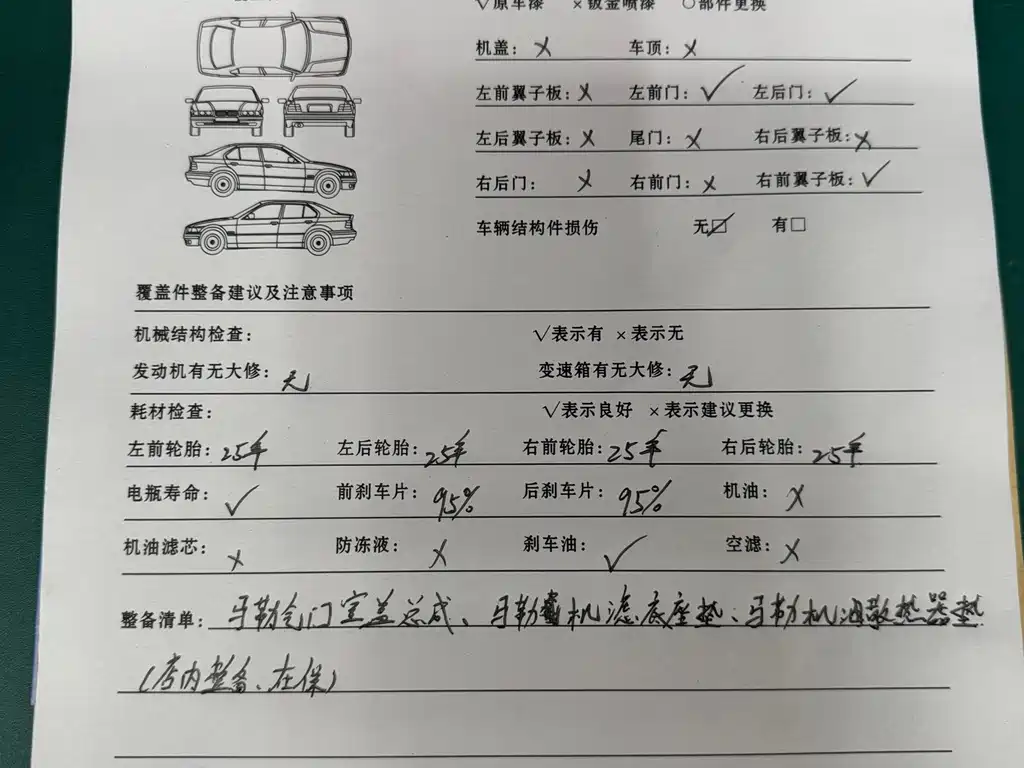 √原车漆 ×钣金喷漆 ○部件更换
机盖: × 车顶: ×
左前翼子板: × 左前门: √ 左后门: √
左后翼子板: × 尾门: × 右后翼子板: ×
右后门: × 右前门: × 右前翼子板: √
车辆结构件损伤 无☑ 有□
覆盖件整备建议及注意事项
机械结构检查: √表示有 ×表示无
发动机有无大修: 无 变速箱有无大修: 无
耗材检查: √表示良好 ×表示建议更换
左前轮胎: 25年 左后轮胎: 25年 右前轮胎: 25年 右后轮胎: 25年
电瓶寿命: √ 前刹车片: 95% 后刹车片: 95% 机油: ×
机油滤芯: × 防冻液: × 刹车油: √ 空滤: ×
整备清单: 马勒气门室盖总成、马勒机滤底座垫、马勒机油散热器垫
(店内整备、在保)